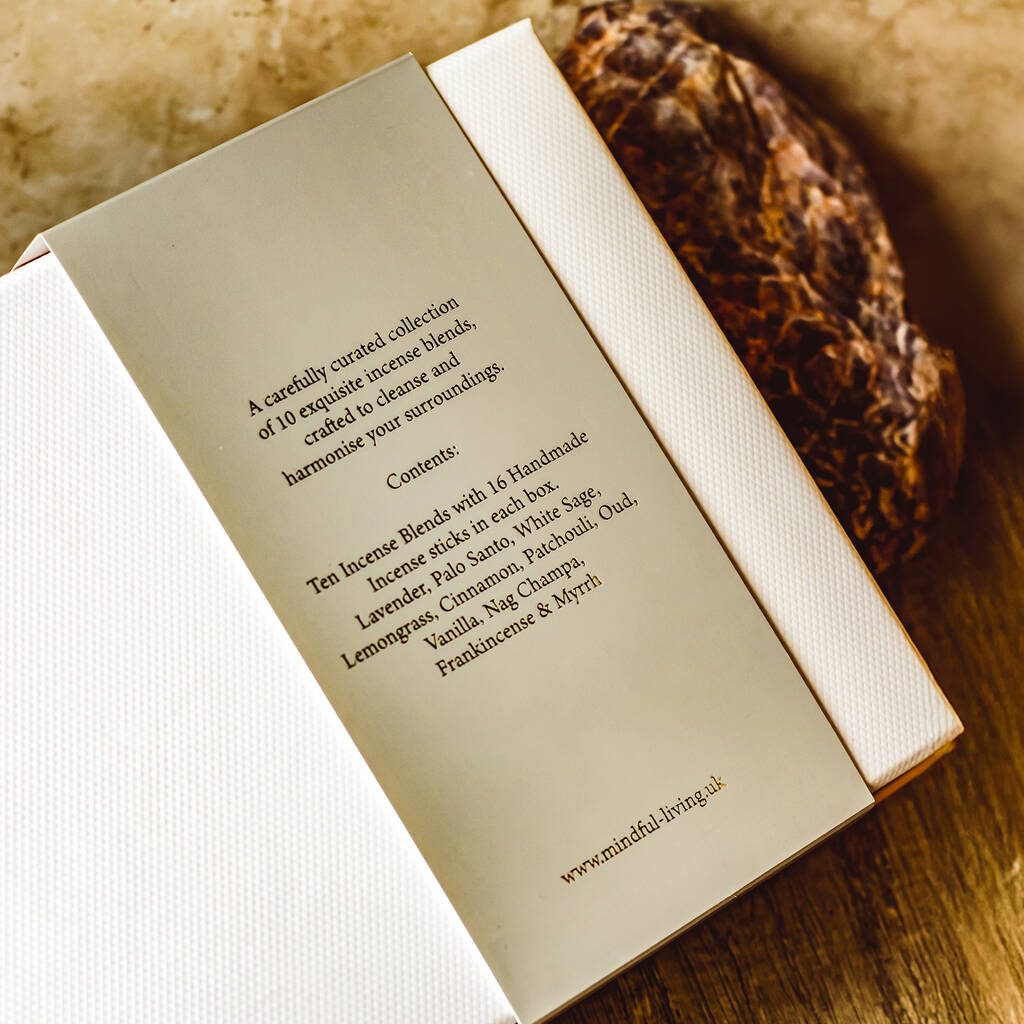 A carefully curated collection
of 10 exquisite incense blends,
crafted to cleanse and
harmonise your surroundings.
Contents:
Ten Incense Blends with 16 Handmade
Incense sticks in each box.
Lavender, Palo Santo, White Sage,
Lemongrass, Cinnamon, Patchouli, Oud,
Vanilla, Nag Champa,
Frankincense & Myrrh
www.mindful-living.uk